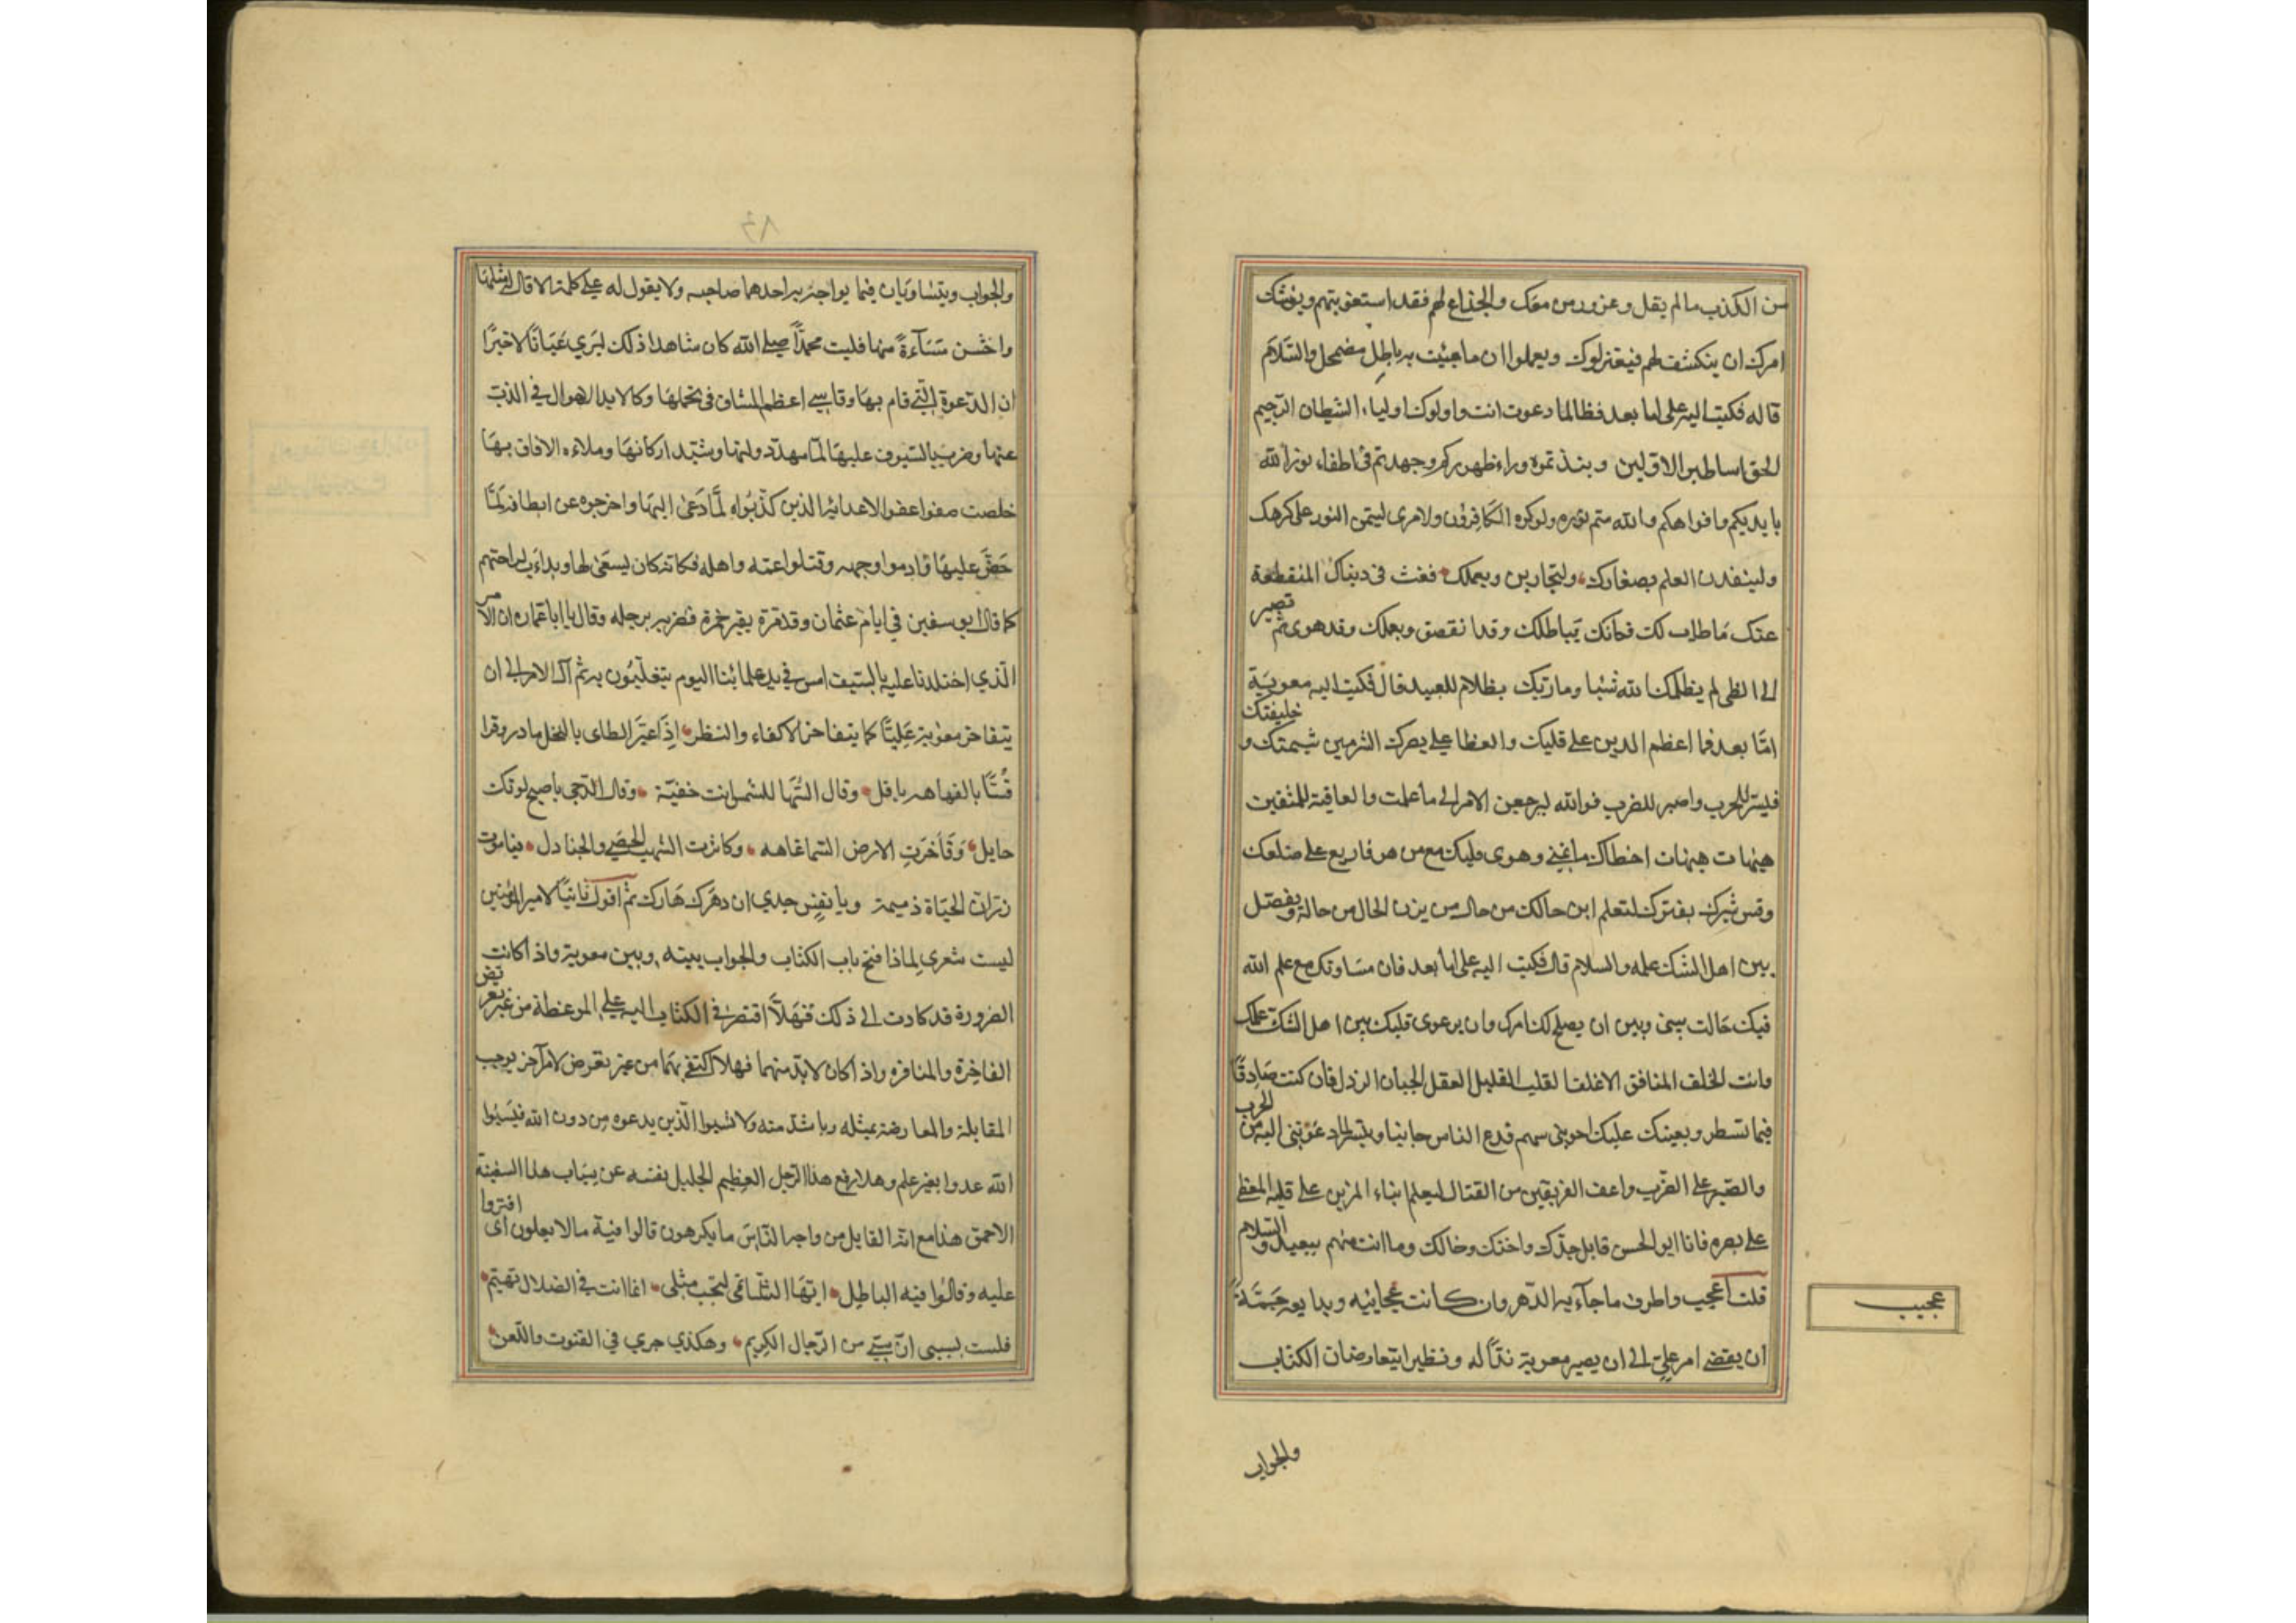 من الكذب مالم يقل وغرور من معك والخداع لهم فقد استغويتهم ويوشك
امرك ان ينكشف لهم فيعتزلوك ويعملوا ان ماجئت به باطل مضمحل والسلام
قاله فكتب اليه علي اما بعد فطالما دعوت انت واولوك اولياء الشيطان الرجيم
الحق اساطير الاولين ونبذتموه وراء ظهوركم وجهدتم في اطفاء نور الله
بايديكم وافواهكم والله متم نوره ولوكره الكافرون ولامرى ليتمن النور على كرهك
ولينفذن العلم بصغارك ولتجازين وبعملك فعث في دنياك المنقطعة
عنك ماطاب لك فكانك بباطلك وقد انقصق وبعملك وقد هوى ثم تصير
الى لظى لم يظلمك الله شيئا وماربك بظلام للعبيد قال فكتب اليه معوية
امّا بعد فما اعظم الرين على قلبك والغطا على بصرك الشر من شيمتك و خليفتك
فليسر للحرب واصبر للضرب فوالله ليرجعن الامر الى ماعلمت والعاقبة للمتقين
هيهات هيهات اخطاك ماتمنى وهوى قلبك مع من هو فاربع على ضلعك
وقس شبرك بفترك لتعلم اين حالك من حال من يزن الجبال من حاله ويفصل
بين اهل الشك علمه والسلام قال فكتب اليه على اما بعد فان مساوتك مع علم الله
فيك حالت بينى وبين ان يصلح لك امرك وان يرعوى قلبك بين اهل الشك علمك
وانت الخلف المنافق الاغلف القلب القليل العقل الجبان الرذل فان كنت صادقا
فيما تسطر ويعينك عليك اخو بنى سهم فدع الناس جانبا وتيسر لما دعوتنى اليه من الحرب
والصبر على الضرب واعف الفريقين من القتال ليعلم ايناء المرين على قلبه المغط
على بصره فانا ابو الحسن قاتل جدك واخيك وخالك وما انت منهم ببعيد والسلام
قلت اعجب واطرف ماجآء به الدهر وان كانت عجايبه وبدايعه جمّة
ان يفضى امر علي الى ان يصير معوية ندًّا له ونظيرا يتعارضان الكتاب
عجيب
والجواب
٨٤
والجواب ويتساويان فيما يواجه به احدهما صاحبه ولا يقول له علي كلمة الا قال مثلها
واخشن مسآءة منها فليت محمدًا صلى الله كان شاهدا ذلك ليرى عيانًا لا خبرًا
ان الدعوة التي قام بها وقاسى اعظم المشاق في تحملها وكابد الاهوال في الذب
عنها وضرب بالسيوف عليها لما مهد دولتها وشيد اركانها وملاء الافاق بها
خلصت صفوا عفوا لاعدائه الذين كذّبوه لمّا دعى اليها واخرجوه عن اوطانه لمّا
حضّ عليها وادموا وجهه وقتلوا عمه واهله فكانه كان يسعى لها ويداءب لراحتهم
كما قال ابو سفين في ايام عثمان وقد مر بقبر حمزة فضربه برجله وقال يا ابا عماره ان الامر
الذي اجتلدنا عليه بالسيف امس في يد غلمائنا اليوم يتغلبون به ثم آل الامر الى ان
يتفاخر معوية عليًّا كما يتفاخر الاكفاء والنظر اذا عيّر الطاى بالبخل مادر وقرا
قسًّا بالفهاهه باقل وقال السّها للشمس انت خفيّة وقال الدجى ياصبح لونك
حايل وفاخرت الارض السما غاهه وكاثرت الشهب الحصى والجنادل فياموت
زر ان الحياة ذميمة ويا نفس جدي ان دهرك هازك ثم اقول ثانيًا لامير المؤمنين
ليت شعرى لماذا فتح باب الكتاب والجواب بينه وبين معوية واذ اكانت
الضرورة قد كادت الى ذلك فهلا اقتصر في الكتاب اليه على الموعظة من غير تعرض
الفاخرة والمنافره واذ اكان لابد منهما فهلا اكتفى بهما من غير تعرض لامر آخر يوجب
المقابلة والمعارضة بمثله وباشد منه ولا تسبوا الذين يدعوه من دون الله فيسبوا
الله عدوا بغير علم وهلا رفع هذا الرجل العظيم الجليل نفسه عن سباب هذا السفينة
الاحمق هذا مع انه القايل من واجه الناس مايكرهون قالوا فيه مالا يعلون اى افتروا
عليه وقالوا فيه الباطل ايها الشاتمى لتحب مثلى انما انت في الضلال تهيم
فلست بسبى ان سبّى من الرجال الكريم وهكذى جرى في القنوت واللعن